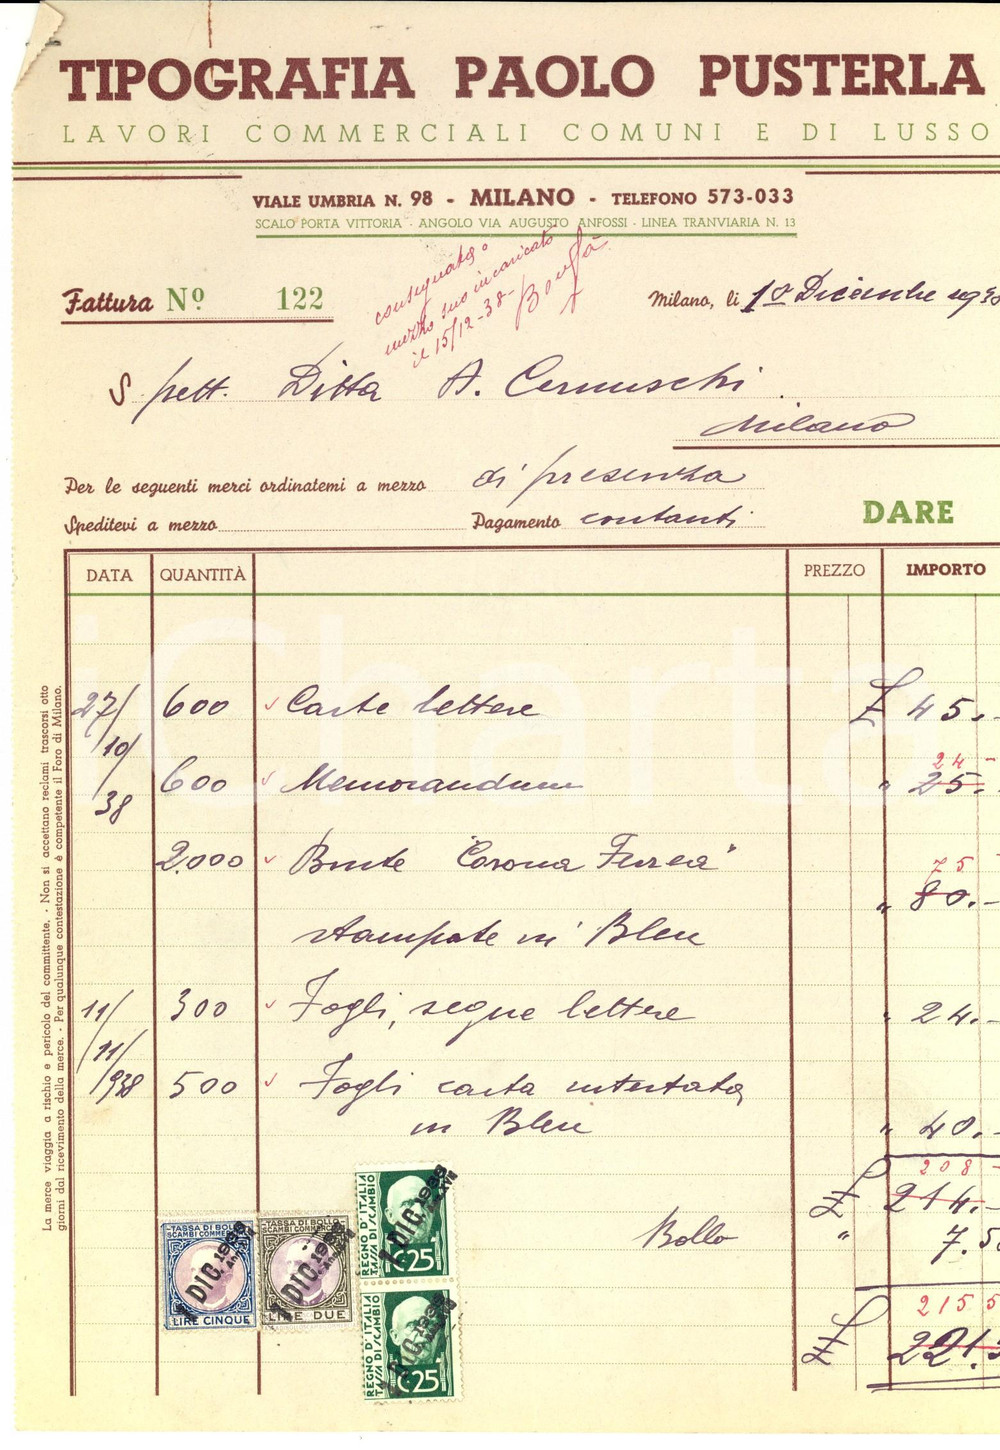 TIPOGRAFIA PAOLO PUSTERLA
LAVORI COMMERCIALI COMUNI E DI LUSSO
VIALE UMBRIA N. 98 - MILANO - TELEFONO 573-033
SCALO PORTA VITTORIA - ANGOLO VIA AUGUSTO ANFOSSI - LINEA TRANVIARIA N. 13
consegnata
mezzo suo incaricato
il 15/12-38-
Fattura Nº 122
Milano, li 1º Dicembre 1938
Spett. Ditta A. Cernuschi
Milano
Per le seguenti merci ordinatemi a mezzo di presenza
Speditevi a mezzo Pagamento contanti
DARE
DATA QUANTITÀ PREZZO IMPORTO
27/10/38 600 Carte lettere £ 45.-
24 -
600 Memorandum " 25.-
2.000 Buste "Corona Ferrea"
75
" 80.-
stampate in Bleu
11/11/938 300 Fogli, segue lettere " 24.-
500 Fogli carta intestata
in Bleu " 40.-
208 -
£ 214.-
Bollo " 7.50
215 5
£ 221.5
TASSA DI BOLLO
SCAMBI COMMERC
LIRE CINQUE
1 DIC. 1938
TASSA DI BOLLO
SCAMBI COMMERC
LIRE DUE
1 DIC. 1938
REGNO D'ITALIA
TASSA DI SCAMBIO
C. 25
1 DIC. 1938
REGNO D'ITALIA
TASSA DI SCAMBIO
C. 25
1 DIC. 1938
La merce viaggia a rischio e pericolo del committente. - Non si accettano reclami trascorsi otto
giorni dal ricevimento della merce. - Per qualunque contestazione è competente il Foro di Milano.
iCharta